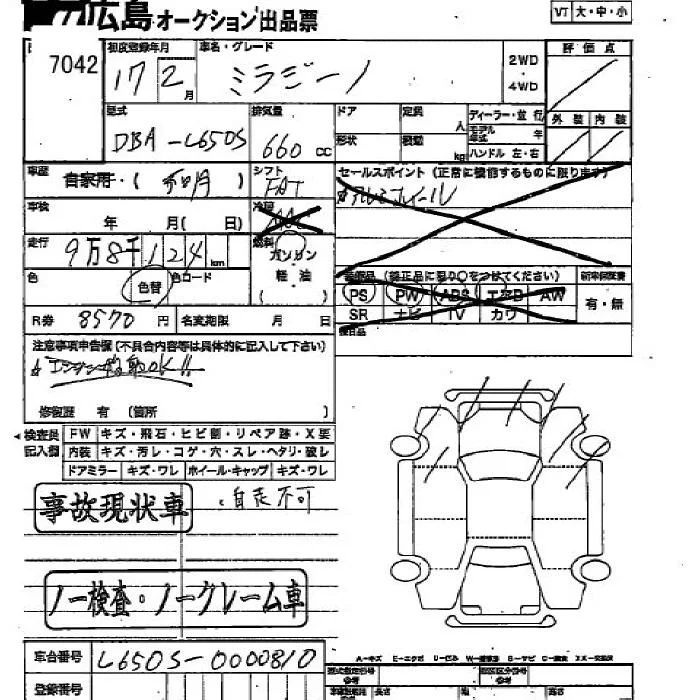 広島オークション出品票
VT 大・中・小
7042
初度登録年月 車名・グレード
17 2月 ミラジーノ
2WD
4WD
評価点
型式 排気量 ドア 定員 ディーラー・並行
DBA-L650S 660cc 人 モデル年式 年
形状 積載 kg ハンドル 左・右
外装 内装
車歴 シフト セールスポイント(正常に機能するものに限ります)
自家用・( ) FAT アルミホイール
車検 冷房
年 月( 日) AAC
走行 燃料
9万8千124km ガソリン
色 色替 色コード 軽油
( )
装備品(純正品に限り○をつけてください) 新車保証書
PS PW ABS エアB AW 有・無
SR ナビ TV カワ
R券 8570円 名変期限 月 日
後日品
注意事項申告欄(不具合内容等は具体的に記入して下さい)
エンジン始動OK!!
修復歴 有 (箇所 )
検査員記入欄 FW キズ・飛石・ヒビ割・リペア跡・X要
内装 キズ・汚レ・コゲ・穴・スレ・ヘタリ・破レ
ドアミラー キズ・ワレ ホイール・キャップ キズ・ワレ
事故現状車 ・自走不可
ノー検査・ノークレーム車
車台番号 L650S-0000810
A-キズ E-エクボ
型式指定番号 類別区分番号
登録番号 長さ 幅 高さ